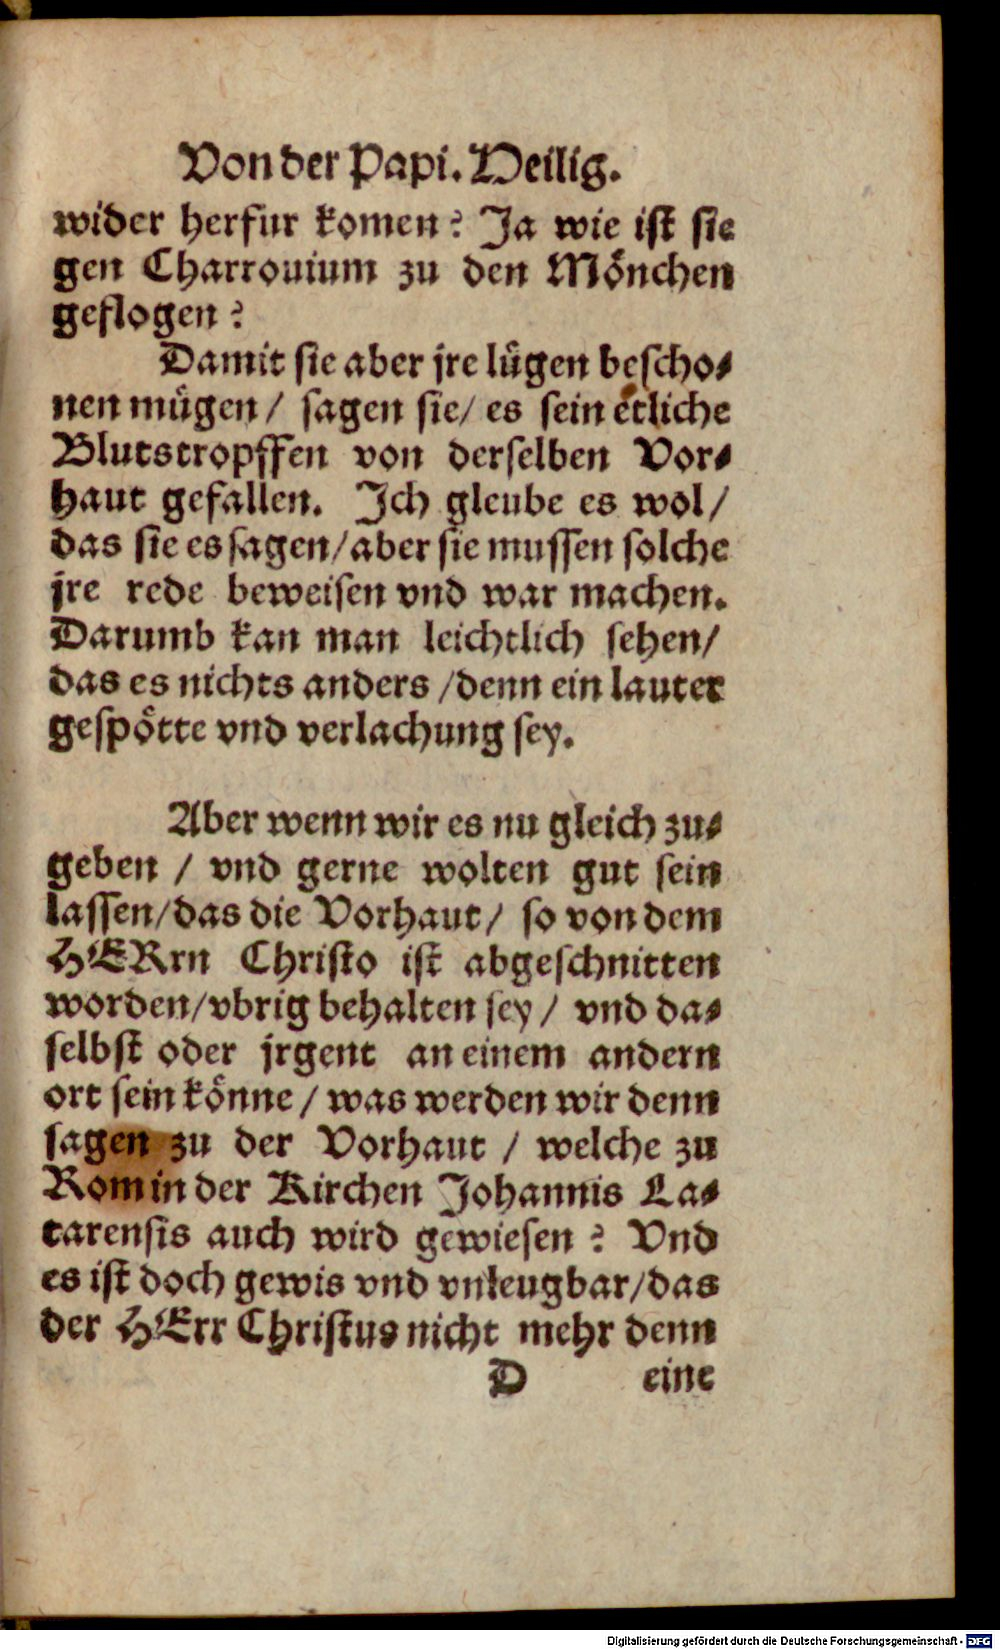 Von der Papi. Heilig.
wider herfur komen? Ja wie ist sie
gen Charrouium zu den Mönchen
geflogen?
Damit sie aber jre lügen bescho⸗
nen mügen/ sagen sie/ es sein etliche
Blutstropffen von derselben Vor⸗
haut gefallen. Jch gleube es wol/
das sie es sagen/ aber sie mussen solche
jre rede beweisen vnd war machen.
Darumb kan man leichtlich sehen/
das es nichts anders /denn ein lauter
gespötte vnd verlachung sey.
Aber wenn wir es nu gleich zu⸗
geben / vnd gerne wolten gut sein
lassen/ das die Vorhaut/ so von dem
HERrn Christo ist abgeschnitten
worden/ vbrig behalten sey/ vnd da⸗
selbst oder jrgent an einem andern
ort sein könne / was werden wir denn
sagen zu der Vorhaut / welche zu
Rom in der Kirchen Johannis La⸗
tarensis auch wird gewiesen? Vnd
es ist doch gewis vnd vnleugbar/ das
der HErr Christus nicht mehr denn
D eine
Digitalisierung gefördert durch die Deutsche Forschungsgemeinschaft - DFG